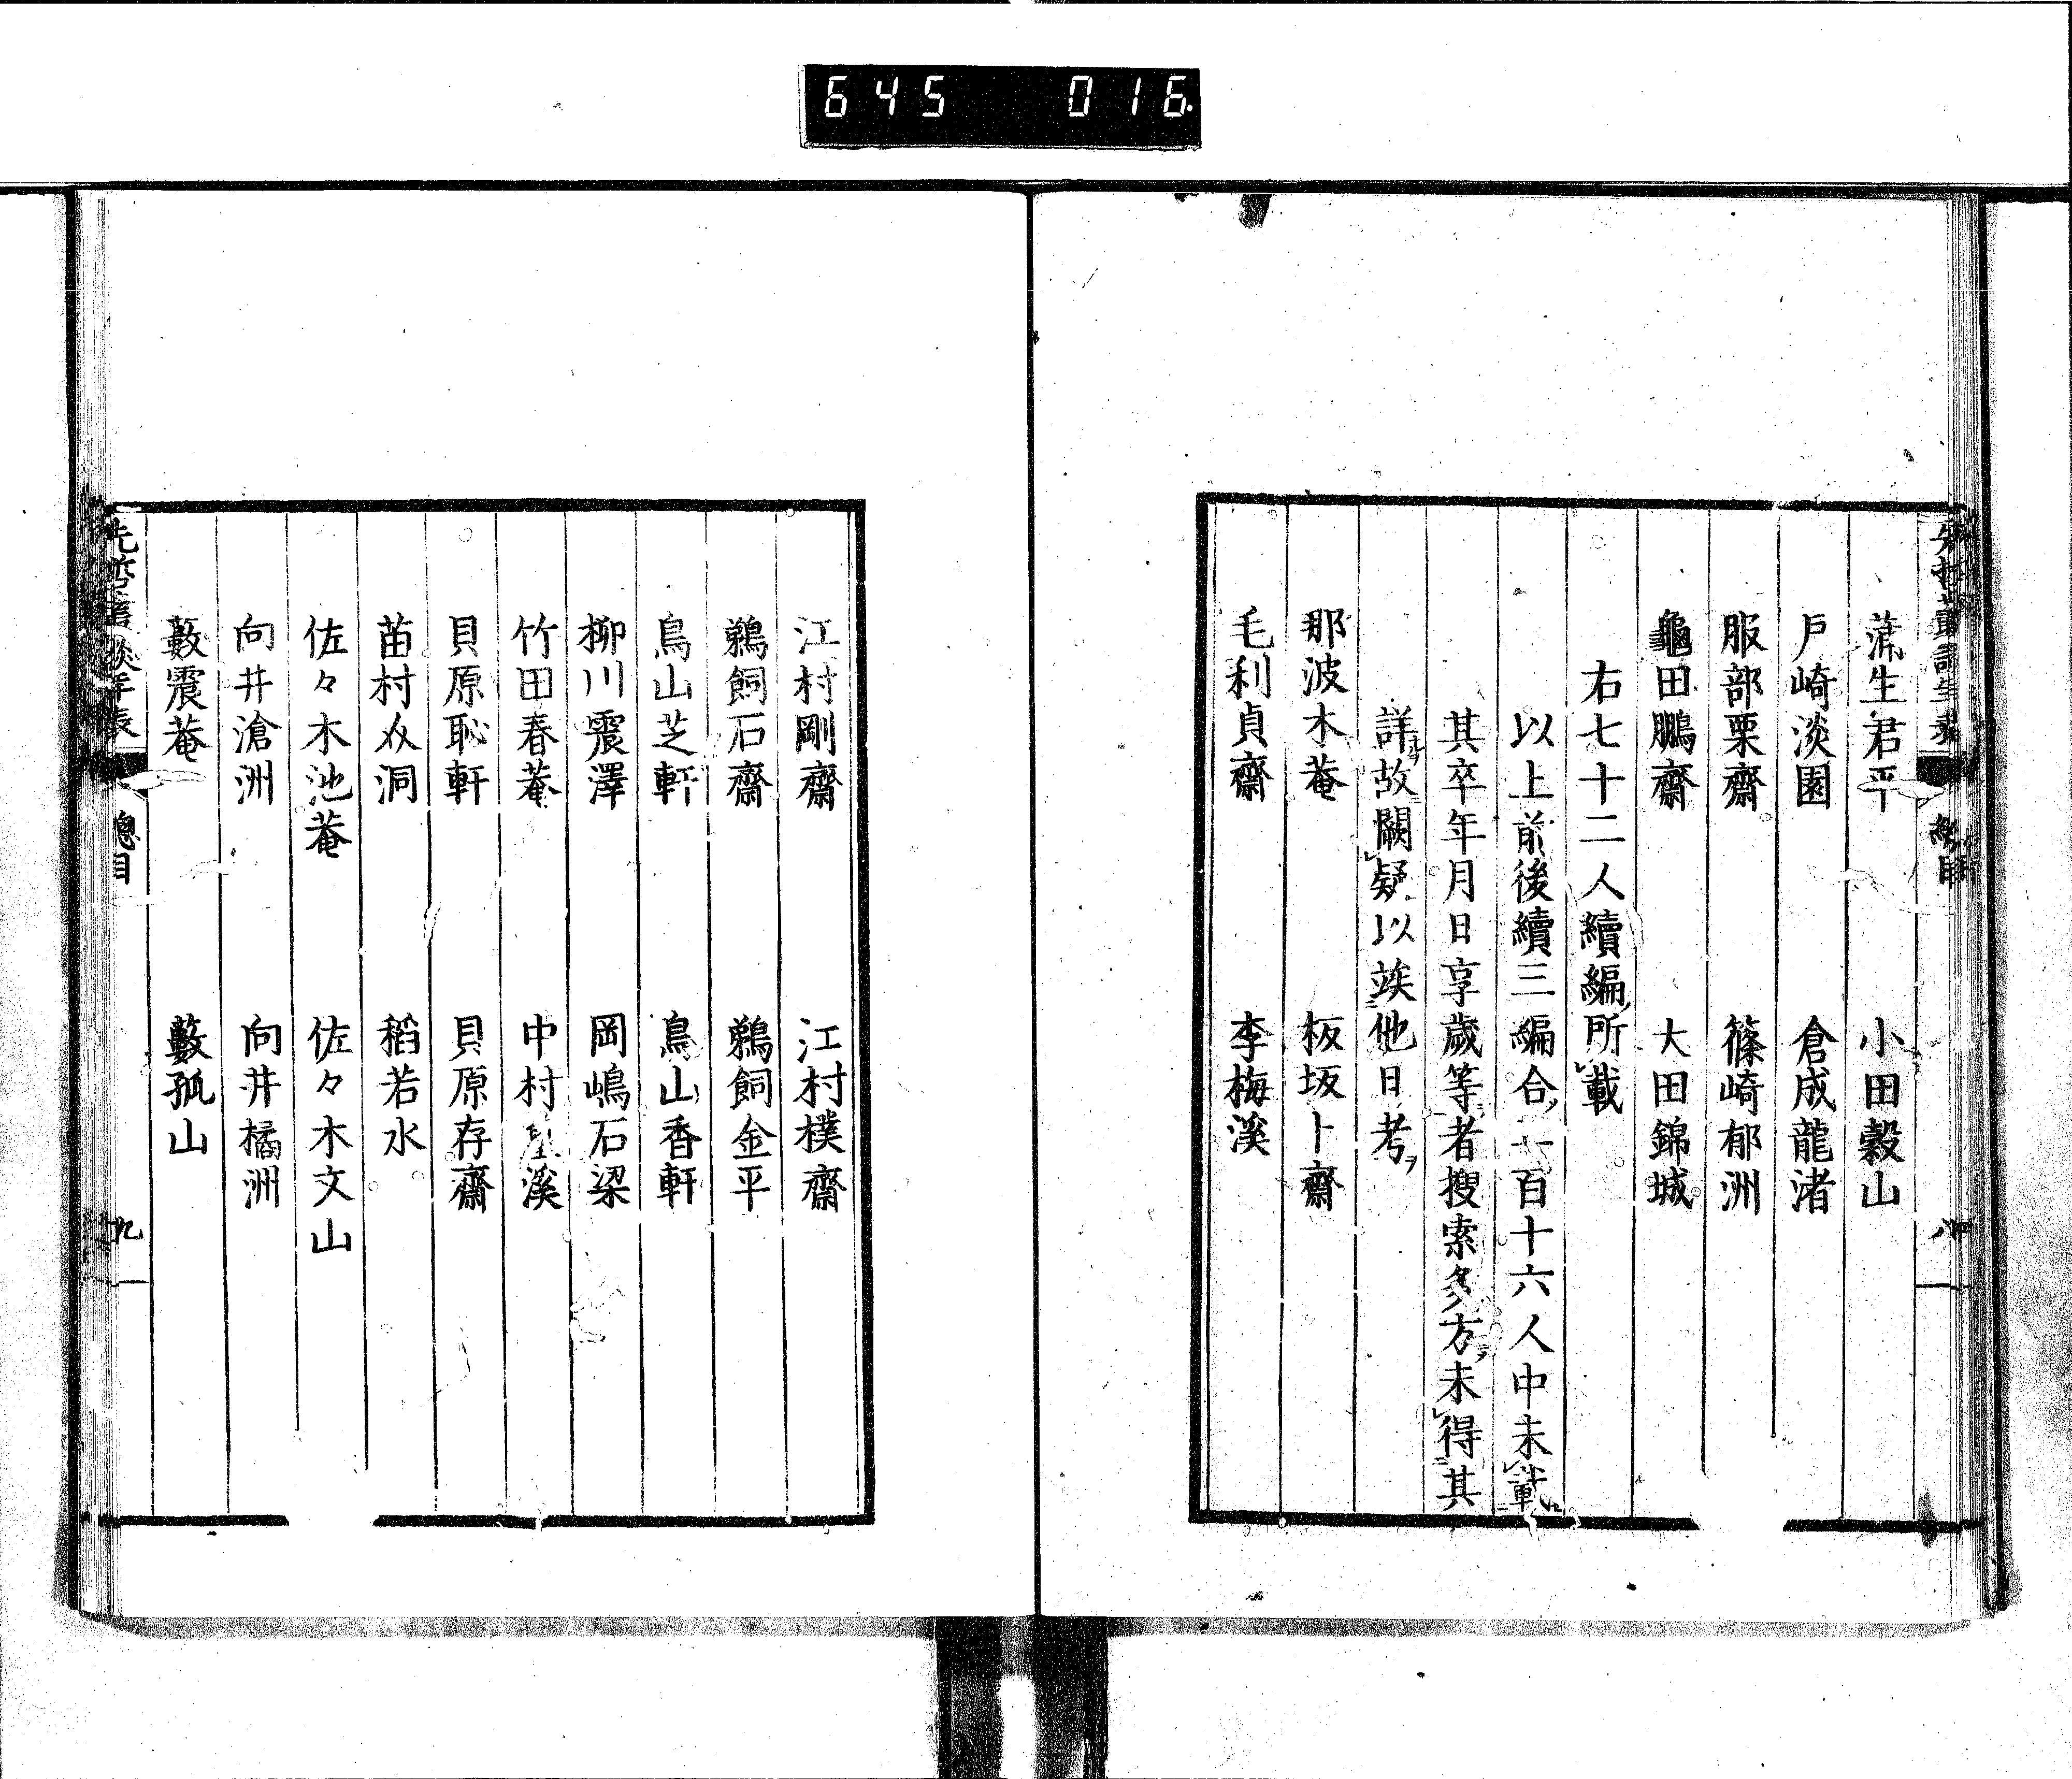 645 016
蒲生君平 小田穀山
戸崎淡園 倉成龍渚
服部栗齋 篠崎郁洲
龜田鵬齋 大田錦城
右七十二人續編所載
以上前後續三編合百十六人中未載
其卒年月日享歲等者搜索多方未得其
詳故闕疑以竢他日考
那波木菴 板坂卜齋
毛利貞齋 李梅溪
江村剛齋 江村樸齋
鵜飼石齋 鵜飼金平
鳥山芝軒 鳥山香軒
柳川震澤 岡嶋石梁
竹田春菴 中村溪
貝原恥軒 貝原存齋
苗村洞 稻若水
佐々木池菴 佐々木文山
向井滄洲 向井橘洲
藪震菴 藪孤山
先哲叢談年表 總目 九